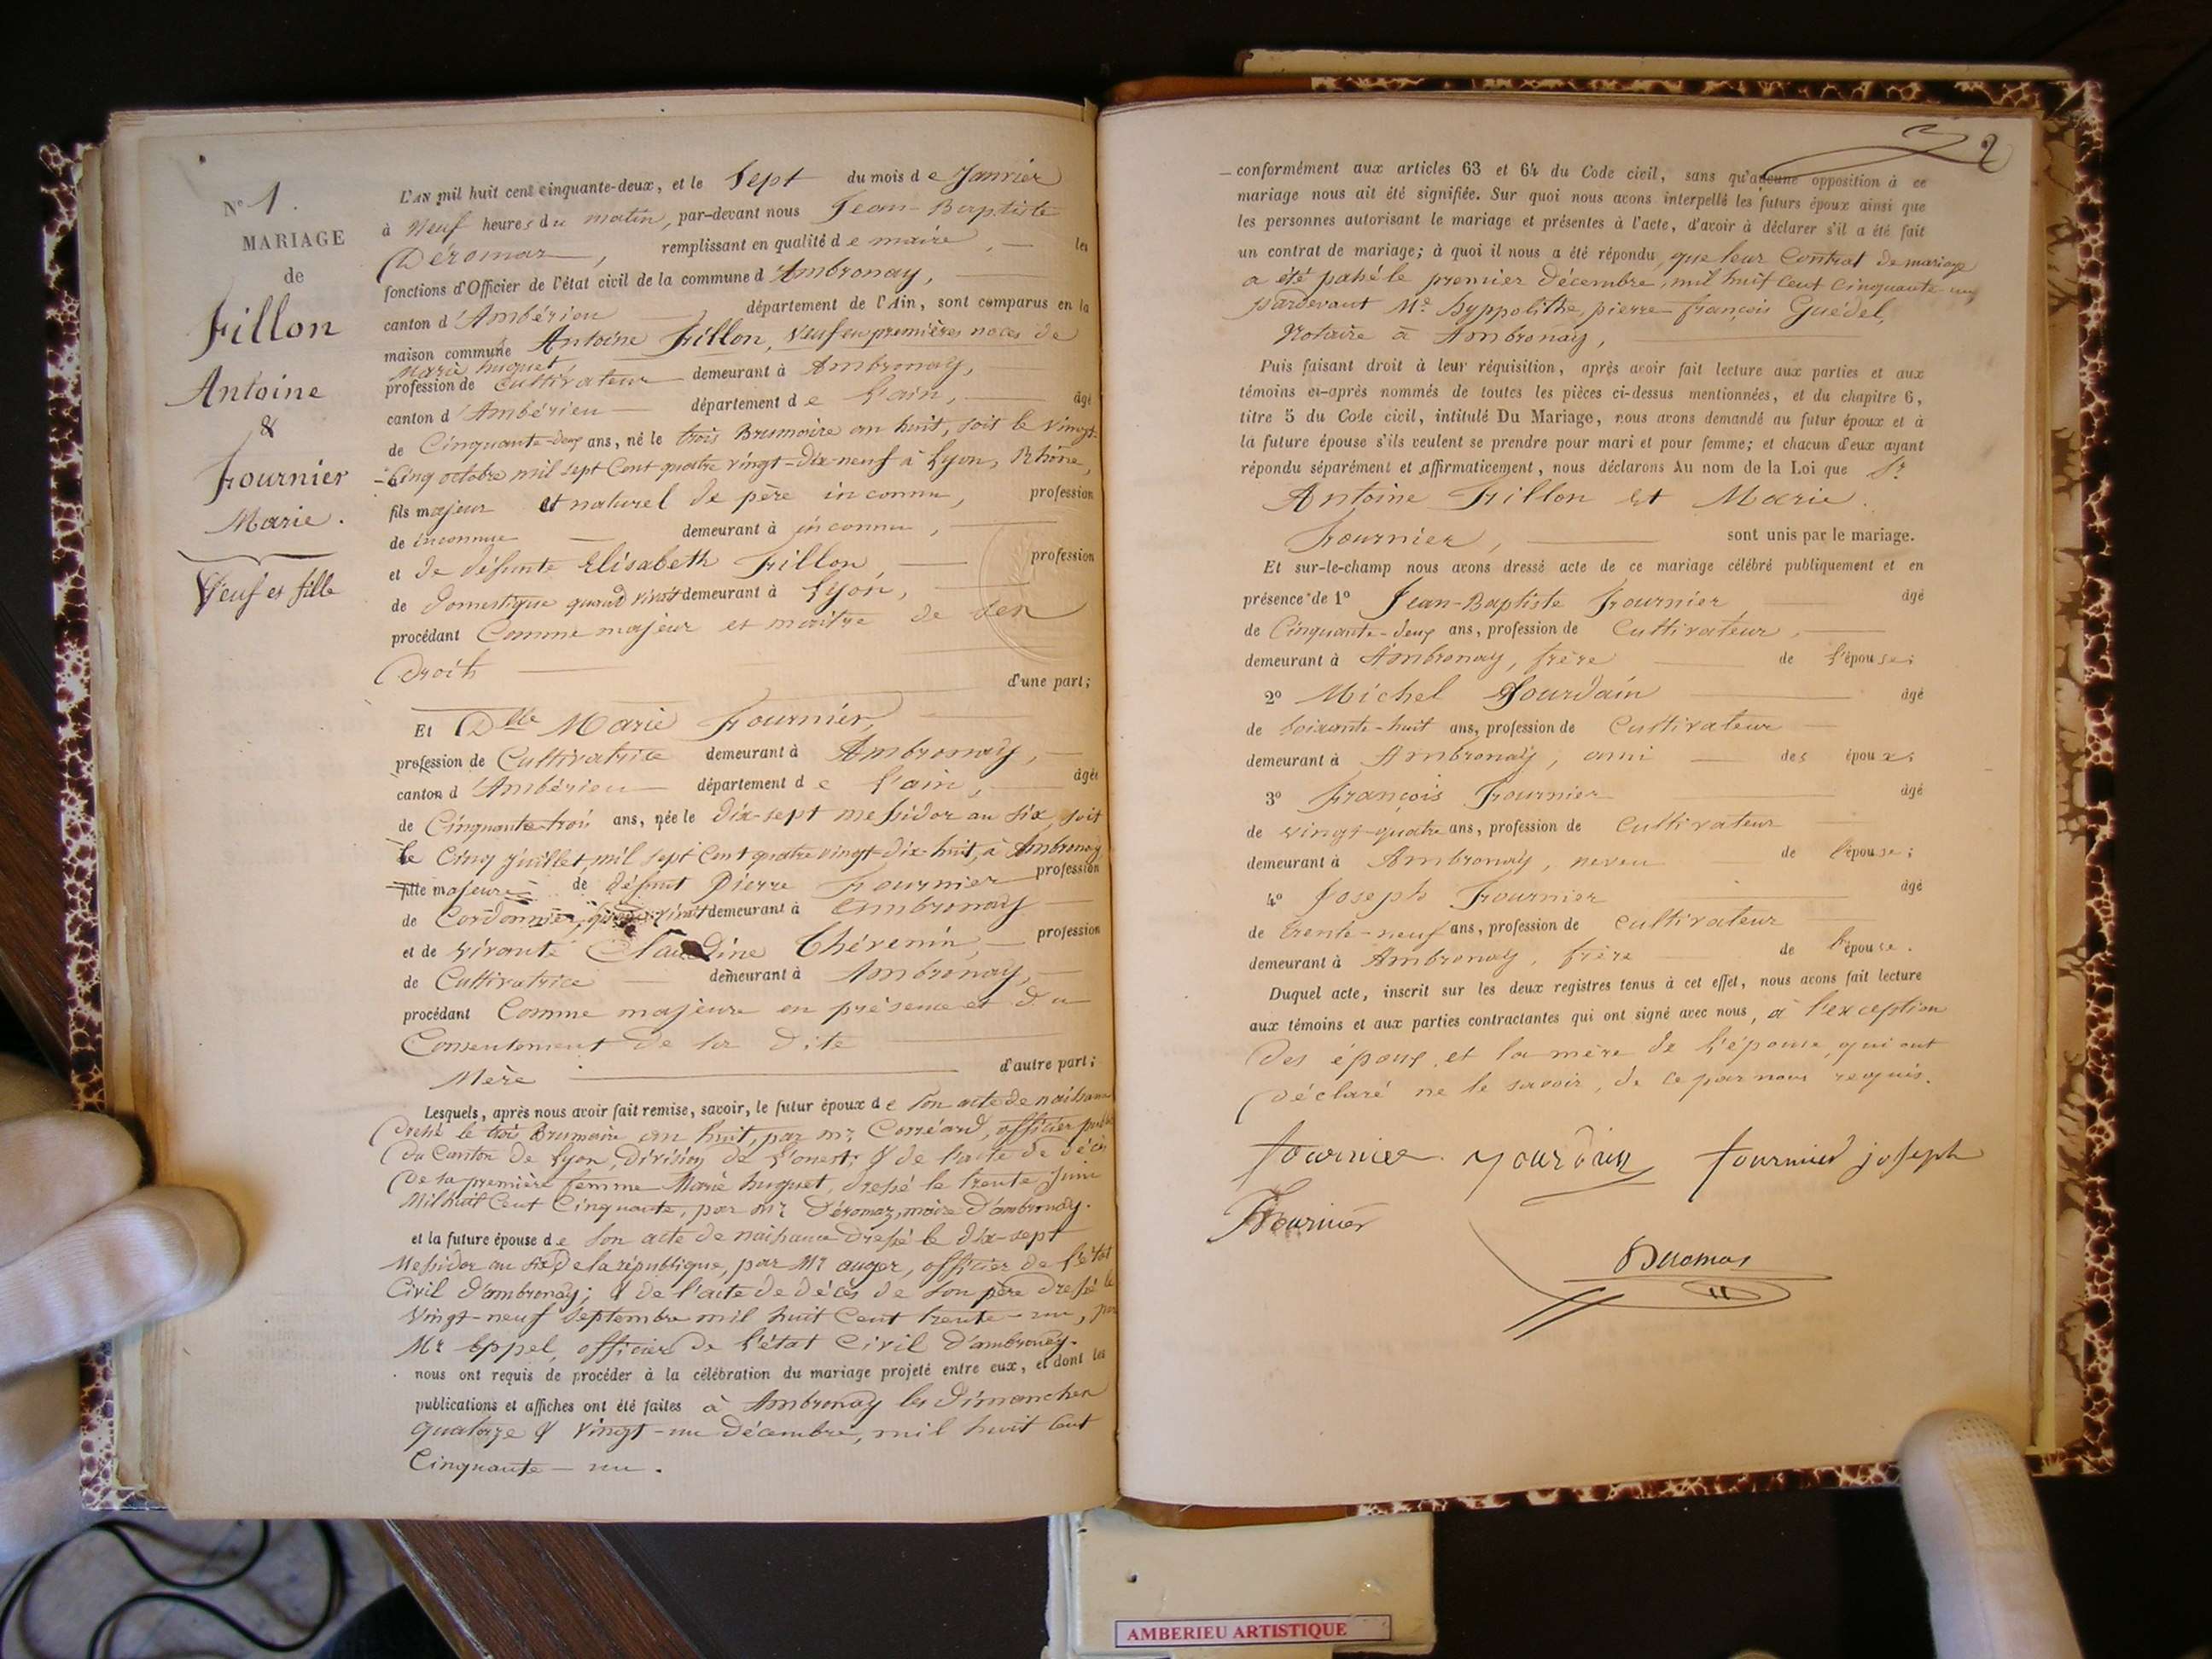 N° 1.
MARIAGE
de
Fillon
Antoine
&
Fournier
Marie.
Veuf et fille
L'AN mil huit cent cinquante-deux, et le Sept du mois de Janvier
à Neuf heures du matin, par-devant nous Jean-Baptiste
Déromas, remplissant en qualité de maire, les
fonctions d'Officier de l'état civil de la commune d'Ambronay,
canton d'Ambérieu département de l'Ain, sont comparus en la
maison commune Antoine Fillon, Veuf en premières noces de
Marie huguet,
profession de Cultivateur demeurant à Ambronay,
canton d'Ambérieu département de l'ain, âgé
de Cinquante-deux ans, né le trois Brumaire an huit, soit le Vingt-
-Cinq octobre mil sept Cent quatre vingt-dix-neuf à Lyon, Rhône,
fils majeur et naturel de père inconnu, profession
de inconnue demeurant à inconnu,
et de défunte Elisabeth Fillon, profession
de domestique quand vivait demeurant à Lyon,
procédant Comme majeur et maître de ses
Droits
d'une part;
Et Dlle Marie Fournier,
profession de Cultivatrice demeurant à Ambronay,
canton d'Ambérieu département de l'ain, âgée
de Cinquante-trois ans, née le dix-sept messidor an six, soit
le Cinq juillet, mil sept Cent quatre vingt-dix-huit, à Ambronay
fille majeure de défunt Pierre Fournier profession
de Cordonnier, vivait demeurant à Ambronay
et de vivante Claudine Thévenin, profession
de Cultivatrice demeurant à Ambronay,
procédant Comme majeure en présence et du
Consentement de la dite
Mère d'autre part;
Lesquels, après nous avoir fait remise, savoir, le futur époux de son acte de naissance
Dressé le trois Brumaire an huit, par mr Corréard, officier public
du Canton de Lyon, division de l'ouest; & de l'acte de décès
De sa première femme Marie huguet, dressé le trente Juin
Mil huit Cent Cinquante, par mr Déromaz, maire d'ambronay.
et la future épouse de son acte de naissance dressé le dix-sept
Messidor an six de la république, par Mr auger, officier de l'état
Civil d'ambronay; & de l'acte de décès de son père dressé le
Vingt-neuf Septembre mil huit Cent trente-un, par
Mr Eppel, officier de l'état Civil d'ambronay.
nous ont requis de procéder à la célébration du mariage projeté entre eux, et dont les
publications et affiches ont été faites à Ambronay les Dimanches
quatorze & Vingt-un Décembre, mil huit Cent
Cinquante-un.
2
conformément aux articles 63 et 64 du Code civil, sans qu'aucune opposition à ce
mariage nous ait été signifiée. Sur quoi nous avons interpellé les futurs époux ainsi que
les personnes autorisant le mariage et présentes à l'acte, d'avoir à déclarer s'il a été fait
un contrat de mariage; à quoi il nous a été répondu, que leur Contrat de mariage
a été passé le premier Décembre, mil huit Cent Cinquante-un,
pardevant Me hyppolithe, pierre-françois Guédel,
Notaire à Ambronay,
Puis faisant droit à leur réquisition, après avoir fait lecture aux parties et aux
témoins ci-après nommés de toutes les pièces ci-dessus mentionnées, et du chapitre 6,
titre 5 du Code civil, intitulé Du Mariage, nous avons demandé au futur époux et à
la future épouse s'ils veulent se prendre pour mari et pour femme; et chacun d'eux ayant
répondu séparément et affirmaticement, nous déclarons Au nom de la Loi que Sr
Antoine Fillon et Marie
Fournier, sont unis par le mariage.
Et sur-le-champ nous avons dressé acte de ce mariage célébré publiquement et en
présence de 1° Jean-Baptiste Fournier, âgé
de Cinquante-deux ans, profession de Cultivateur,
demeurant à Ambronay, frère de l'épouse;
2° Michel Jourdain âgé
de soixante-huit ans, profession de Cultivateur
demeurant à Ambronay, ami des époux;
3° François Fournier âgé
de vingt-quatre ans, profession de Cultivateur
demeurant à Ambronay, neveu de l'épouse;
4° Joseph Fournier âgé
de trente-neuf ans, profession de cultivateur
demeurant à Ambronay, frère de l'épouse.
Duquel acte, inscrit sur les deux registres tenus à cet effet, nous avons fait lecture
aux témoins et aux parties contractantes qui ont signé avec nous, à l'exception
Des époux, et la mère de l'épouse, qui ont
Déclaré ne le savoir, de ce par nous requis.
fournier yourdin fournier joseph
Fournier
AMBERIEU ARTISTIQUE